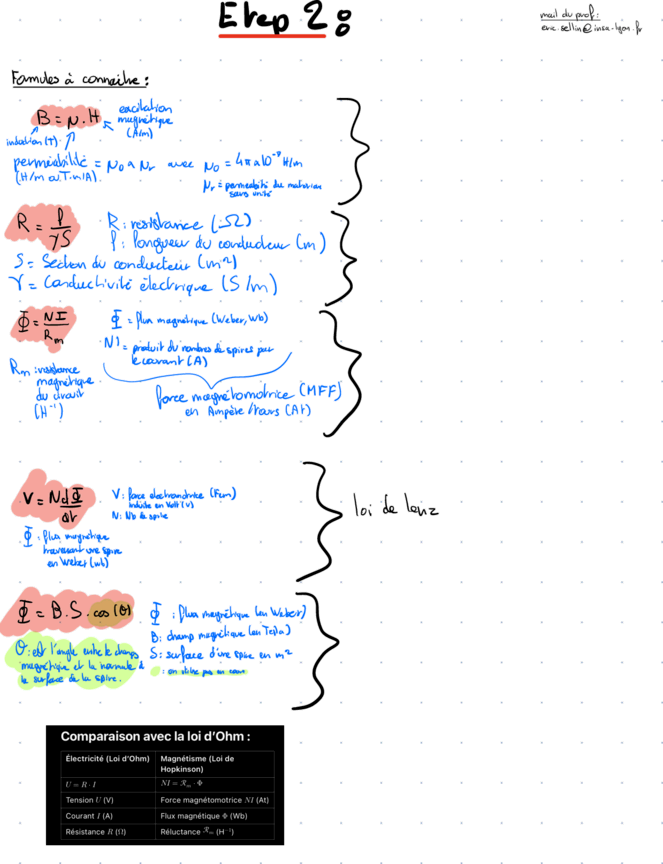 Etep 2 :
mail du prof :
eric.sellin@insa-lyon.fr
Formules à connaitre :
B = μ.H
excitation
magnétique
(A/m)
induction (T)
perméabilité = μ₀ x μr avec μ₀ = 4π x 10⁻⁷ H/m
(H/m ou T.m/A)
μr = perméabilité du matériau
sans unité
R = l/γS
R : résistance (Ω)
l : longueur du conducteur (m)
S = Section du conducteur (m²)
γ = Conductivité électrique (S/m)
Φ = NI/Rm
Φ = flux magnétique (Weber, Wb)
NI = produit du nombres de spires par
le courant (A)
Rm : résistance
magnétique
du circuit
(H⁻¹)
force magnétomotrice (MFF)
en Ampère/tours (At)
V = N dΦ/dt
V : force électromotrice (Fem)
induite en Volt (V)
N : Nb de spire
Φ : flux magnétique
traversant une spire
en Weber (wb)
loi de lenz
Φ = B.S.cos(θ)
Φ : flux magnétique (en Weber)
B : champ magnétique (en Tesla)
S : surface d'une spire en m²
: on utilise pas en cours
θ : est l'angle entre le champs
magnétique et la normale à
la surface de la spire.
Comparaison avec la loi d'Ohm :
Électricité (Loi d'Ohm) Magnétisme (Loi de Hopkinson)
U = R · I NI = ℛm · Φ
Tension U (V) Force magnétomotrice NI (At)
Courant I (A) Flux magnétique Φ (Wb)
Résistance R (Ω) Réluctance ℛm (H⁻¹)